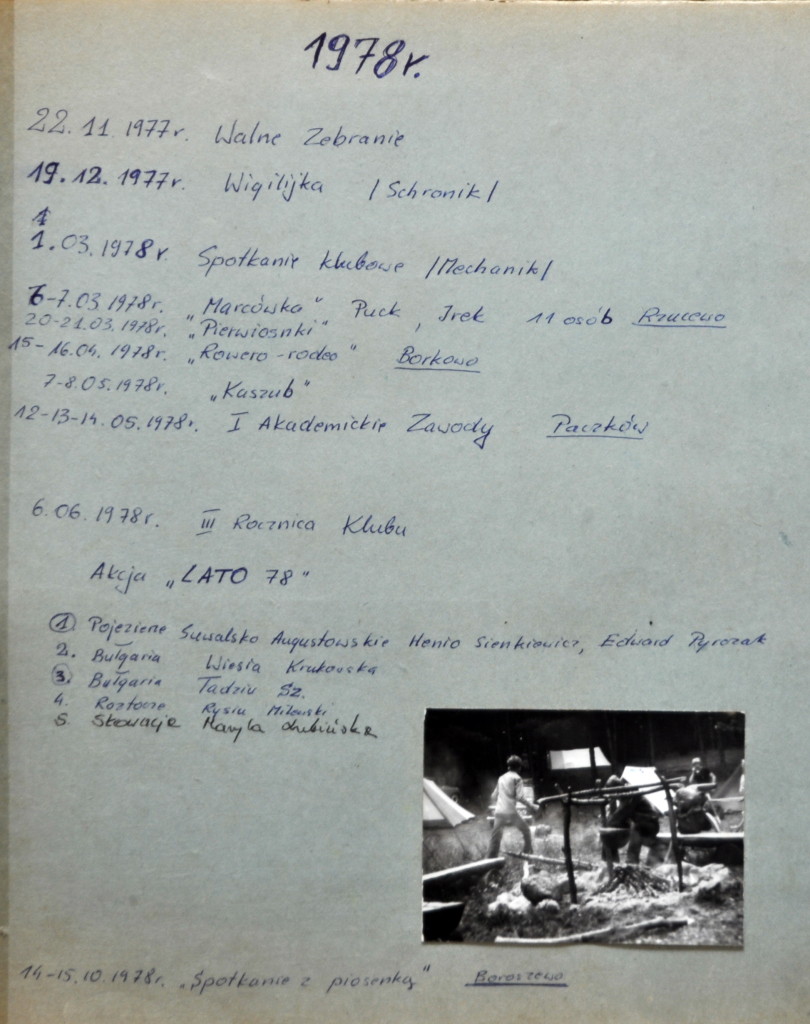 1978r.
22.11.1977r. Walne Zebranie
19.12.1977r. Wigilijka /Schronik/
1
1.03.1978r. Spotkanie klubowe /Mechanik/
6-7.03.1978r. "Marcówka" Puck, Irek 11 osób Rzucewo
20-21.03.1978r. "Pierwiosnki"
15-16.04.1978r. "Rowero-rodeo" Borkowo
7-8.05.1978r. "Kaszub"
12-13-14.05.1978r. I Akademickie Zawody Paczków
6.06.1978r. III Rocznica Klubu
Akcja "LATO 78"
1. Pojezierze Suwalsko Augustowskie Henio Sienkiewicz, Edward
2. Bułgaria Wiesia Krukowska
3. Bułgaria Tadziu Sz.
4. Roztocze Rysiu Milewski
5. Słowacja Maryla
14-15.10.1978r. "Spotkanie z piosenką" Boroszewo